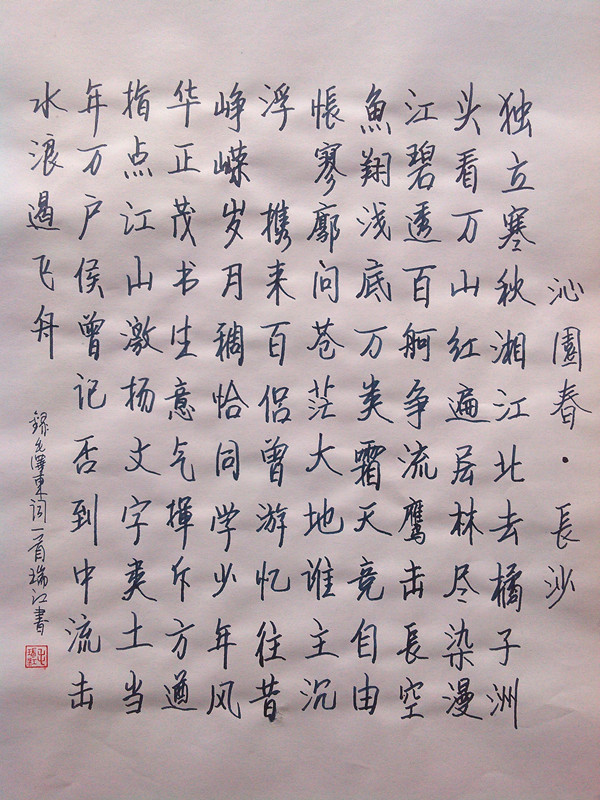 沁園春·長沙
独立寒秋湘江北去橘子洲
头看万山红遍层林尽染漫
江碧透百舸争流鹰击長空
魚翔浅底万类霜天竞自由
悵寥廓问苍茫大地谁主沉
浮 携来百侣曾游忆往昔
峥嵘岁月稠恰同学少年风
华正茂书生意气揮斥方遒
指点江山激扬文字粪土当
年万户侯曾记否到中流击
水浪遏飞舟
錄毛澤東词一首瑞江書